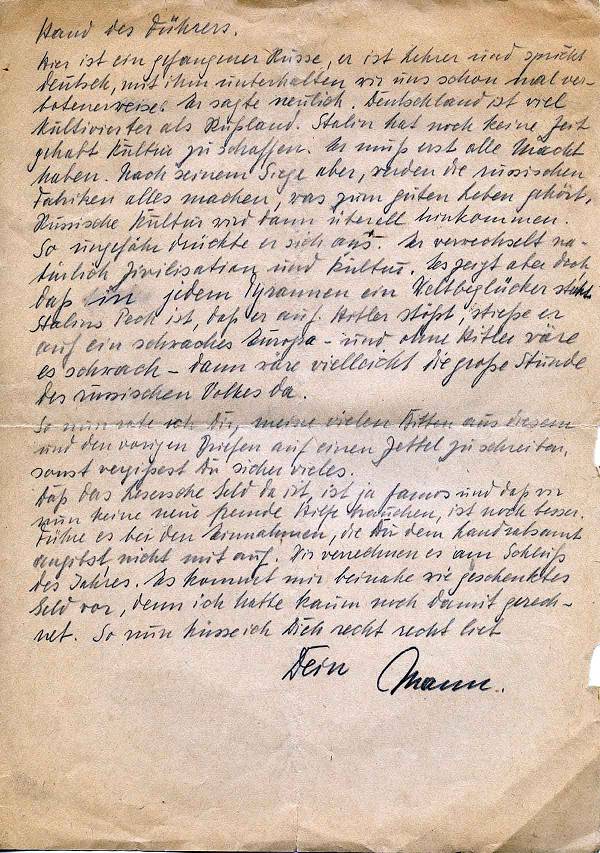 Hand des Führers.
Hier ist ein gefangener Russe, er ist Lehrer und spricht
deutsch, mit ihm unterhalten wir uns schon mal ver-
botenerweise. Er sagte neulich. Deutschland ist viel
kultivierter als Rußland. Stalin hat noch keine Zeit
gehabt Kultur zu schaffen. Er muß erst alle Macht
haben. Nach seinem Siege aber, werden die russischen
Fabriken alles machen, was zum guten Leben gehört,
Russische Kultur wird dann überall hinkommen.
So ungefähr drückte er sich aus. Er verwechselt na-
türlich Zivilisation und Kultur. Es zeigt aber doch
daß in jedem Tyrannen ein Weltbeglücker steckt.
Stalins Pech ist, daß er auf Hitler stößt, stieße er
auf ein schwaches Europa - und ohne Hitler wäre
es schwach - dann wäre vielleicht die große Stunde
des russischen Volkes da.
So nun rate ich Dir, meine vielen Bitten aus diesem
und den vorigen Briefen auf einen Zettel zu schreiben,
sonst vergißest Du sicher vieles.
Daß das Geld da ist, ist ja famos und daß wir
nun keine neue fremde Hilfe brauchen, ist noch besser.
Führe es bei den Einnahmen, die Du dem Landratsamt
angibst nicht mit auf. Wir verrechnen es am Schluß
des Jahres. Es kommt mir beinahe wie geschenktes
Geld vor, denn ich hatte kaum noch damit gerech-
net. So nun küsse ich Dich recht recht lieb
Dein Mann.